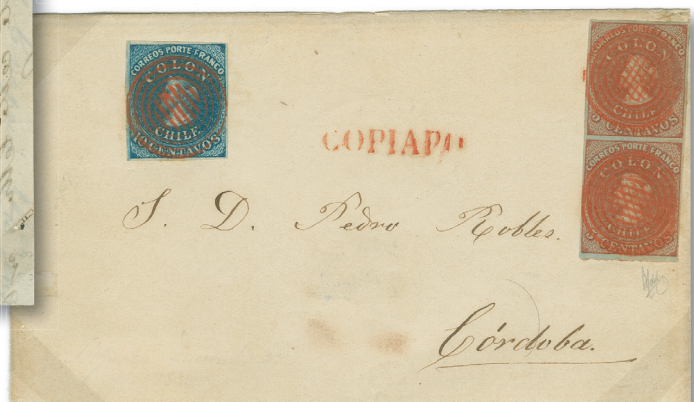 CORREOS PORTE FRANCO
COLON
CHILE
10 CENTAVOS
CORREOS PORTE FRANCO
COLON
CHILE
5 CENTAVOS
CORREOS PORTE FRANCO
COLON
CHILE
5 CENTAVOS
COPIAPO
S. D. Pedro Robles.
Córdoba.